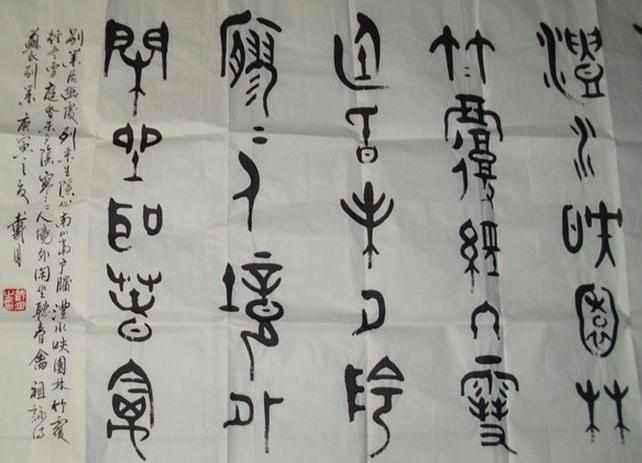 澧水映園林
竹覆經冬雪
庭昏未夕陰
寥〻人境外
閑坐聽春禽
別業居幽處到來生隱心南山當戶牖澧水映園林竹覆
經冬雪庭昏未夕陰寥〻人境外閑坐聽春禽祖詠詩
蘇氏別業庚寅之夏戴